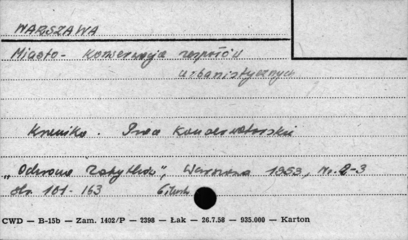 WARSZAWA
Miasto - Konserwacja zespołów
urbanistycznych
Kronika. Prace Konserwatorskie
„Ochrona Zabytków", Warszawa 1953, Nr. 2-3
str. 161-163
CWD — B-15b — Zam. 1402/P — 2298 — Łak — 26.7.58 — 935.000 — Karton